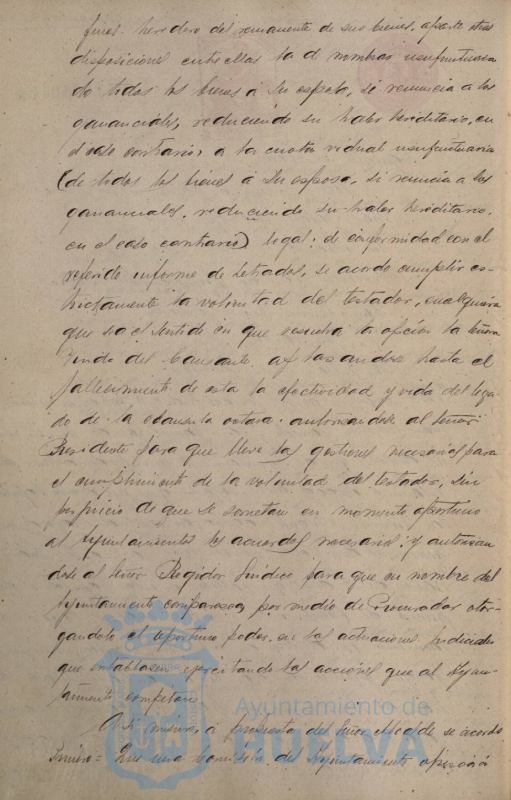 fines. heredero del remanente de sus bienes, aparte otras
disposiciones entre ellas la d nombrar usufructuaria
de todos los bienes á su esposa, si renuncia a los
gananciales, reduciendo su haber hereditario, en
el caso contrario, a la cuota vidual usufructuaria
(de todos los bienes á su esposa, si renuncia a los
gananciales, reduciendo su haber hereditario,
en el caso contrario) legal; de conformidad con el
referido informe de Letrados, se acordó cumplir es-
trictamente la voluntad del testador, cualquiera
que sea el sentido en que resuelva la opción la Señora
Viuda del Causante, aplasandose hasta el
fallecimiento de esta la efectividad y vida del lega
do de la clausula octava. autorizandose al Señor
Presidente para que lleve las gestiones necesarias para
el cumplimiento de la voluntad del testador, sin
perjuicio de que se sometan en momento oportuno
al Ayuntamiento los acuerdos necesarios; y autorizan
dose al Señor Regidor Sindico para que en nombre del
Ayuntamiento comparezca por medio de Procurador otor-
gandole el oportuno poder, en las actuaciones judiciales
que entablasen ejercitando las acciones que al Ayun-
tamiento competan.
Asi mismo, á propuesta del Señor Alcalde se acordó
Primero- Que una Comisión del Ayuntamiento
Ayuntamiento de
HUELVA